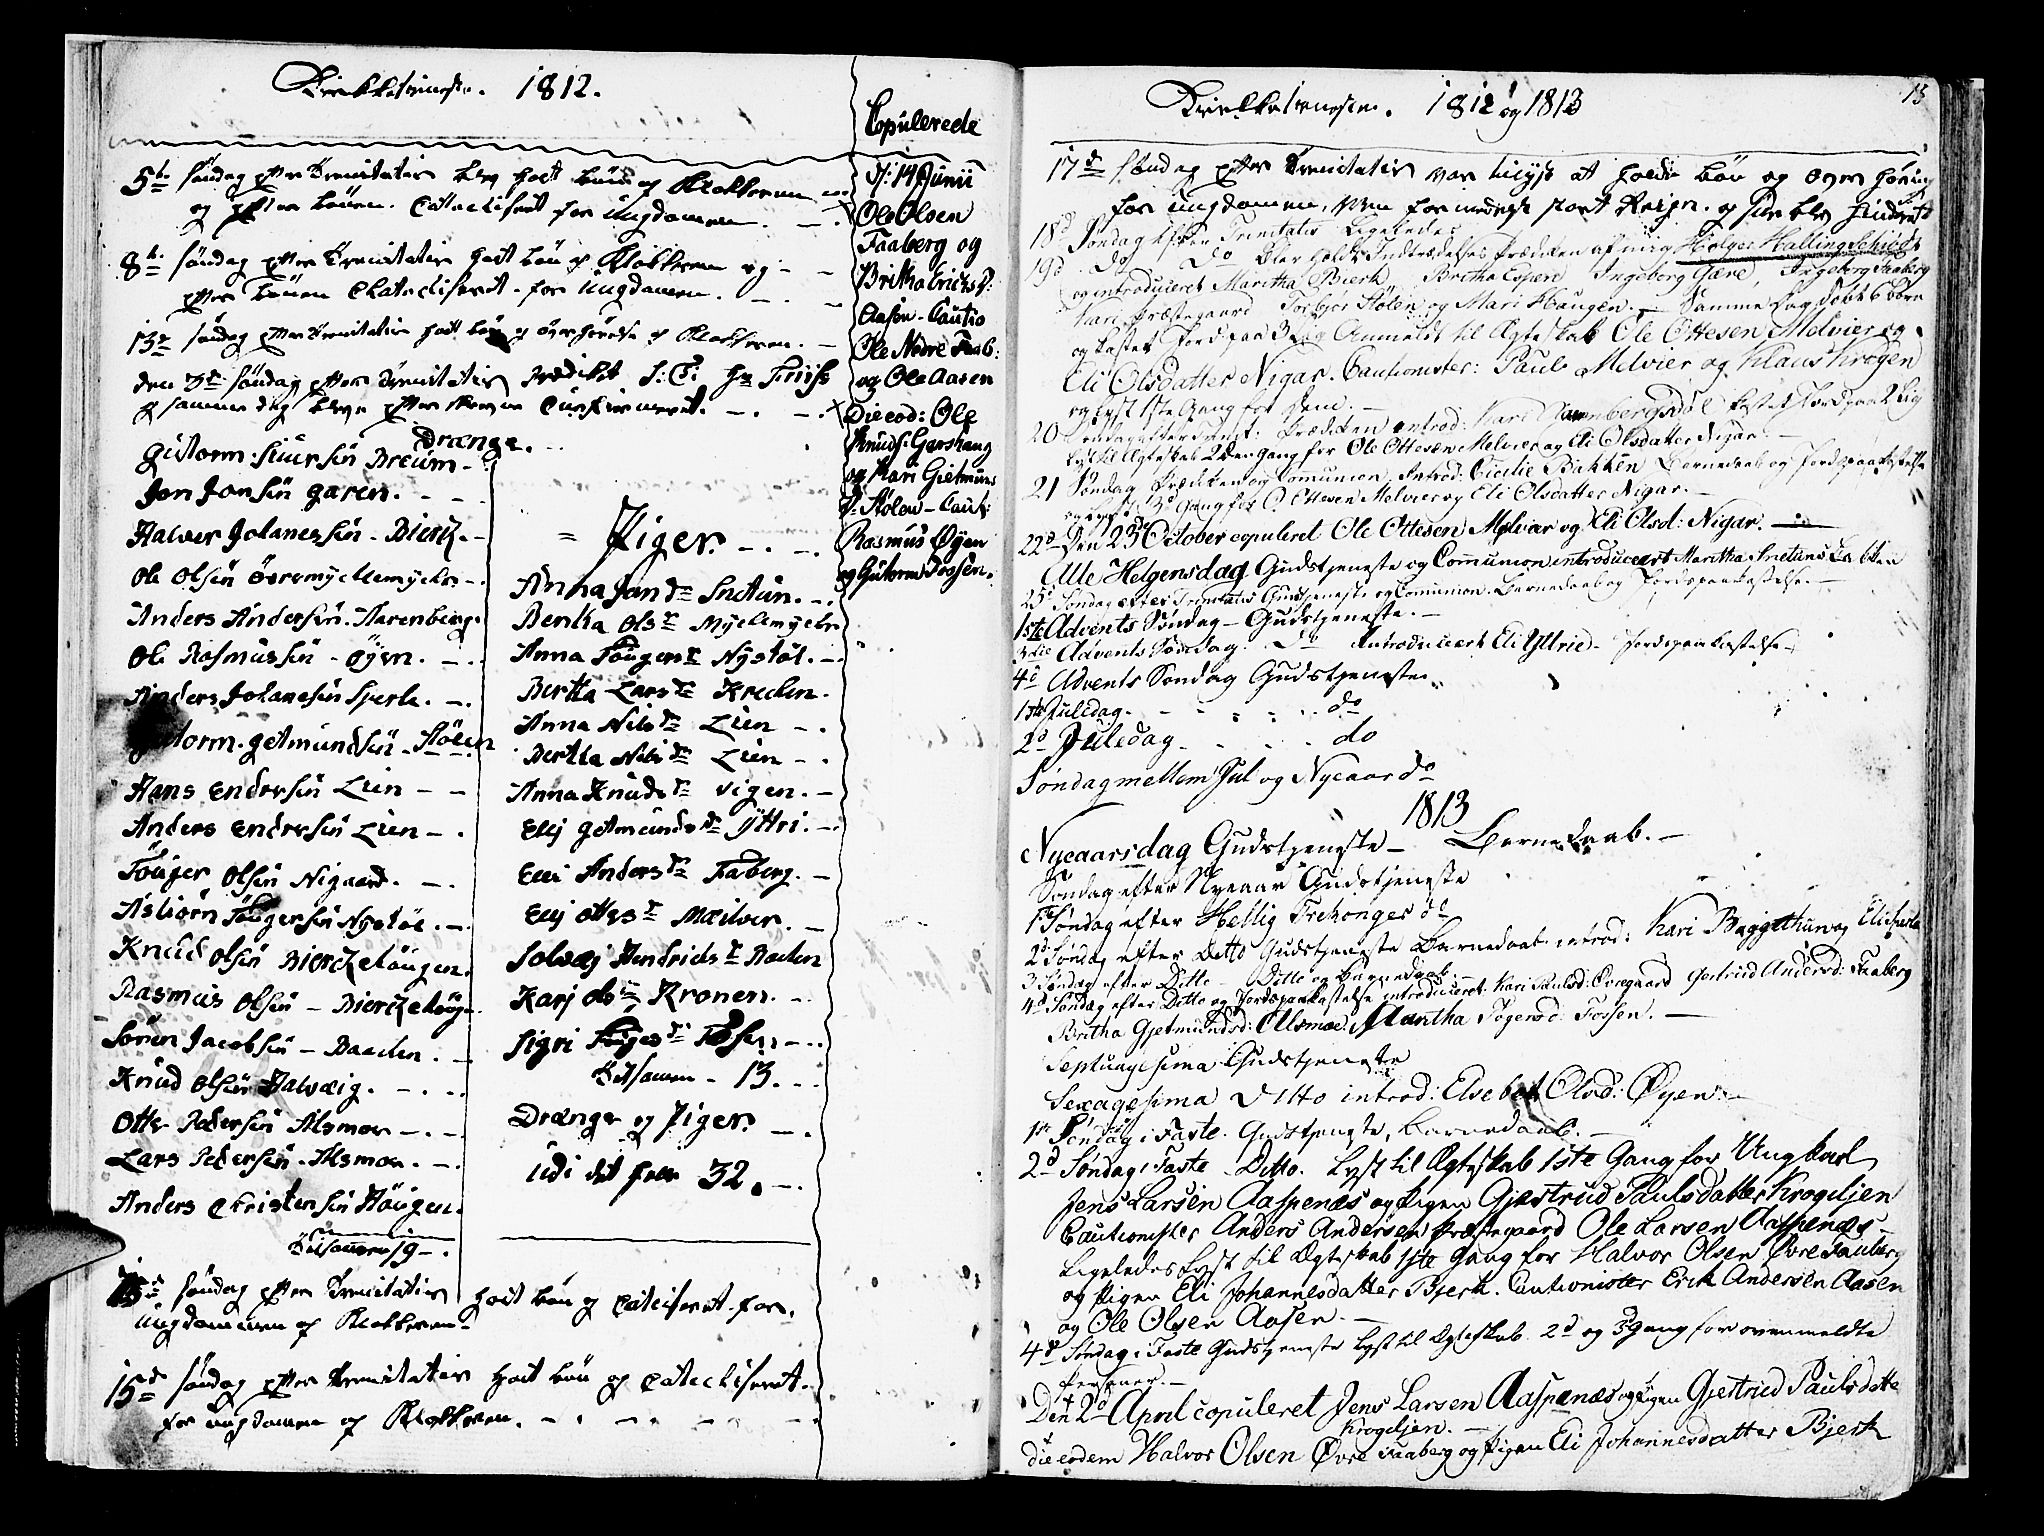 Kirkketienesten. 1812.
Copulerede
5te Søndag efter Trinitatis blev hoct bön af Klokkeren
og efter bönen. Catechiseret for Ungdomen.
8de Søndag efter Trinitatis hoct bön af Klokkeren og
efter bönen Chatechiseret for Ungdomen.
13de Søndag efter Trinitatis hoct bön og overhörelse af Klokkeren.
den Søndag efter Trinitatis prædiket S: T: Hr Friis
og samme dag blev efter Confirmeret.
Drænge.
Gutorm Siursön Breum
Jon Jonsön Garen.
Halver Johanessön Bierk.
Ole Olsön Övremyklemyhr
Anders Andersön Aarenberg.
Ole Rasmussön Öyen.
Anders Johanesön Sperle.
Gutorm Getmundsön Stölen
Hans Endresön Lien
Anders Endresön Lien
Töuger Olsön Nigaard.
Asbiörn Töugersön Nystöl
Knud Olsön Bierkehöugen.
Rasmus Olsön Bierkehöug
Sören Jacobsön Baaden.
Knud Olsön Halvæig.
Otte Pedersön Alsmoe
Lars Pedersön Alsmoe.
Anders Christensön Höugen.
Tilsamen 19
Piger.
Anna Jensdr Snetun.
Beritha Olsdr Myclemyehr
Anna Töugersdr Nystöl.
Bertha Larsdr Krechen.
Anna Nilsdr Lien
Bertha Nilsdr Lien
Anna Knudsdr Vigen.
Elij Getmundsdr Yttri.
Elli Andersdr Faberg.
Elij Ottesdr Mælver.
Solvæj Hendrichsdr Baaden
Karj Olsdr Kronen.
Sigri Töugersdr Fosen
Tilsamen 13.
Drænge og Piger.
Udi det hele 32.
Søndag efter Trinitatis hoct bön og Cateciseret for
Ungdommen af Klokkeren.
15de Søndag efter Trinitatis hoct bön og catechiseret
for Ungdomen af Klokkeren.
D: 14 Junii
Ole Olsen
Faaberg og
Britha Erichs D:
Aasen Cautio
Ole Nedre Faab:
og Ole Aasen
Die eod: Ole
Knuds: Gershaug
og Mari Gietmunds
D: Stölen Caut:
Rasmus Øyen
og Gutorm Fossen.
Kirkketienesten. 1812 og 1813
15
17de Søndag efter Trinitatis var tilyst at holde bön og overhöring
for Ungdomen, men formedelst stort Regn og blev hindret
18d Søndag efter Trinitatis Ligeledes
19d do do blev holdt Indtrædelses Prædiken af mig Holger Halling Schiødt
og introduceret Maritha Bierk, Britha Espen Ingeborg Garé, Ingeborg Faaberg
Kari Præstegaard Torbjør Stölen og Mari Haugen. Samme Dag døbt 6 børn
og kastet Jord paa 3 Lig Anmeldt til Ægteskab Ole Ottesen Melvier og
Eli Olsdatter Nigar. Cautionister: Paul Melvier og Klaus Krogen
og lyst 1ste Gang for dem.
20 Søndag efter Trinit: Prædiken introd: Kari Aarenbergsdøl kastet Jord paa 2 Lig
lyst til Ægteskab 2den gang for Ole Ottesen Melvier og Eli Olsdatter Nigar.
21 Søndag Prædiken og Communion, Introd: Cicilie Bakken Barnedaab og Jordspaakastelse
og lyst 3d Gang for O. Ottesen Melvier og Eli Olsdatter Nigar.
22d Den 23d October copuleret Ole Ottesen Melvær og Eli Olsd: Nigar.
Alle Helgensdag Gudstjeneste og Communion introduceert Maritha Snetuns
25d Søndag efter Trinitatis Gudstjeneste og Communion. Barnedaab og Jordspaakastelse.
1ste Advents Søndag Gudstjeneste.
3die Advents Søndag. do introduceert Eli Ytrie Jordspaakastelse
4d Advents Søndag Gudstjeneste.
1ste Juledag. do
2d Juledag do
Søndag mellem Jul og Nyeaar do
1813
Nyeaarsdag Gudstjeneste Barnedaab.
Søndag efter Nyeaar Gudstjeneste
1 Søndag efter Hellig Trekonger do
2d Søndag efter Ditto Gudstjeneste Barnedaab introd: Kari Baggethunog Eli Sperle
3 Søndag efter Ditto Ditto og Barnedaab
4d Søndag efter Ditto og Jordspaakastelse introduceret Kari Paulsd: Evegaard Gertrud Andersd: Faaberg
Britha Gjetmundsd: Alsmoe Maritha Togersd: Fossen.
Septuagesima Gudstjeneste
Sexagesima Ditto introd: Elsebet Olsd: Øyen.
1ste Søndag i Faste. Gudstjeneste, Barnedaab.
2d Søndag i Faste Ditto. Lyst til Ægteskab 1ste Gang for Ungkarl
Jens Larsen Aaspenæs og Pigen Gjertrud Paulsdatter Krogeljen
Cautionister Anders Andersen Præstegaard Ole Larsen Aaspenæs
Ligeledes Lyst til Ægteskab 1ste Gang for Halvor Olsen Øvre Faaberg
og Pigen Eli Johannesdatter Bjerk. Cautionister Erik Andersen Aasen
og Ole Olsen Aasen.
4d Søndag i Faste Gudstjeneste Lyst til Ægteskab 2d og 3 Gang for ovenmeldte
Personer.
Den 2d April copuleret Jens Larsen Aaspenæs og Pigen Gjertrud Paulsdatte
Krogeljen.
die eodem Halvor Olsen Øvre Faaberg og Pigen Eli Johannesdatter Bjerk